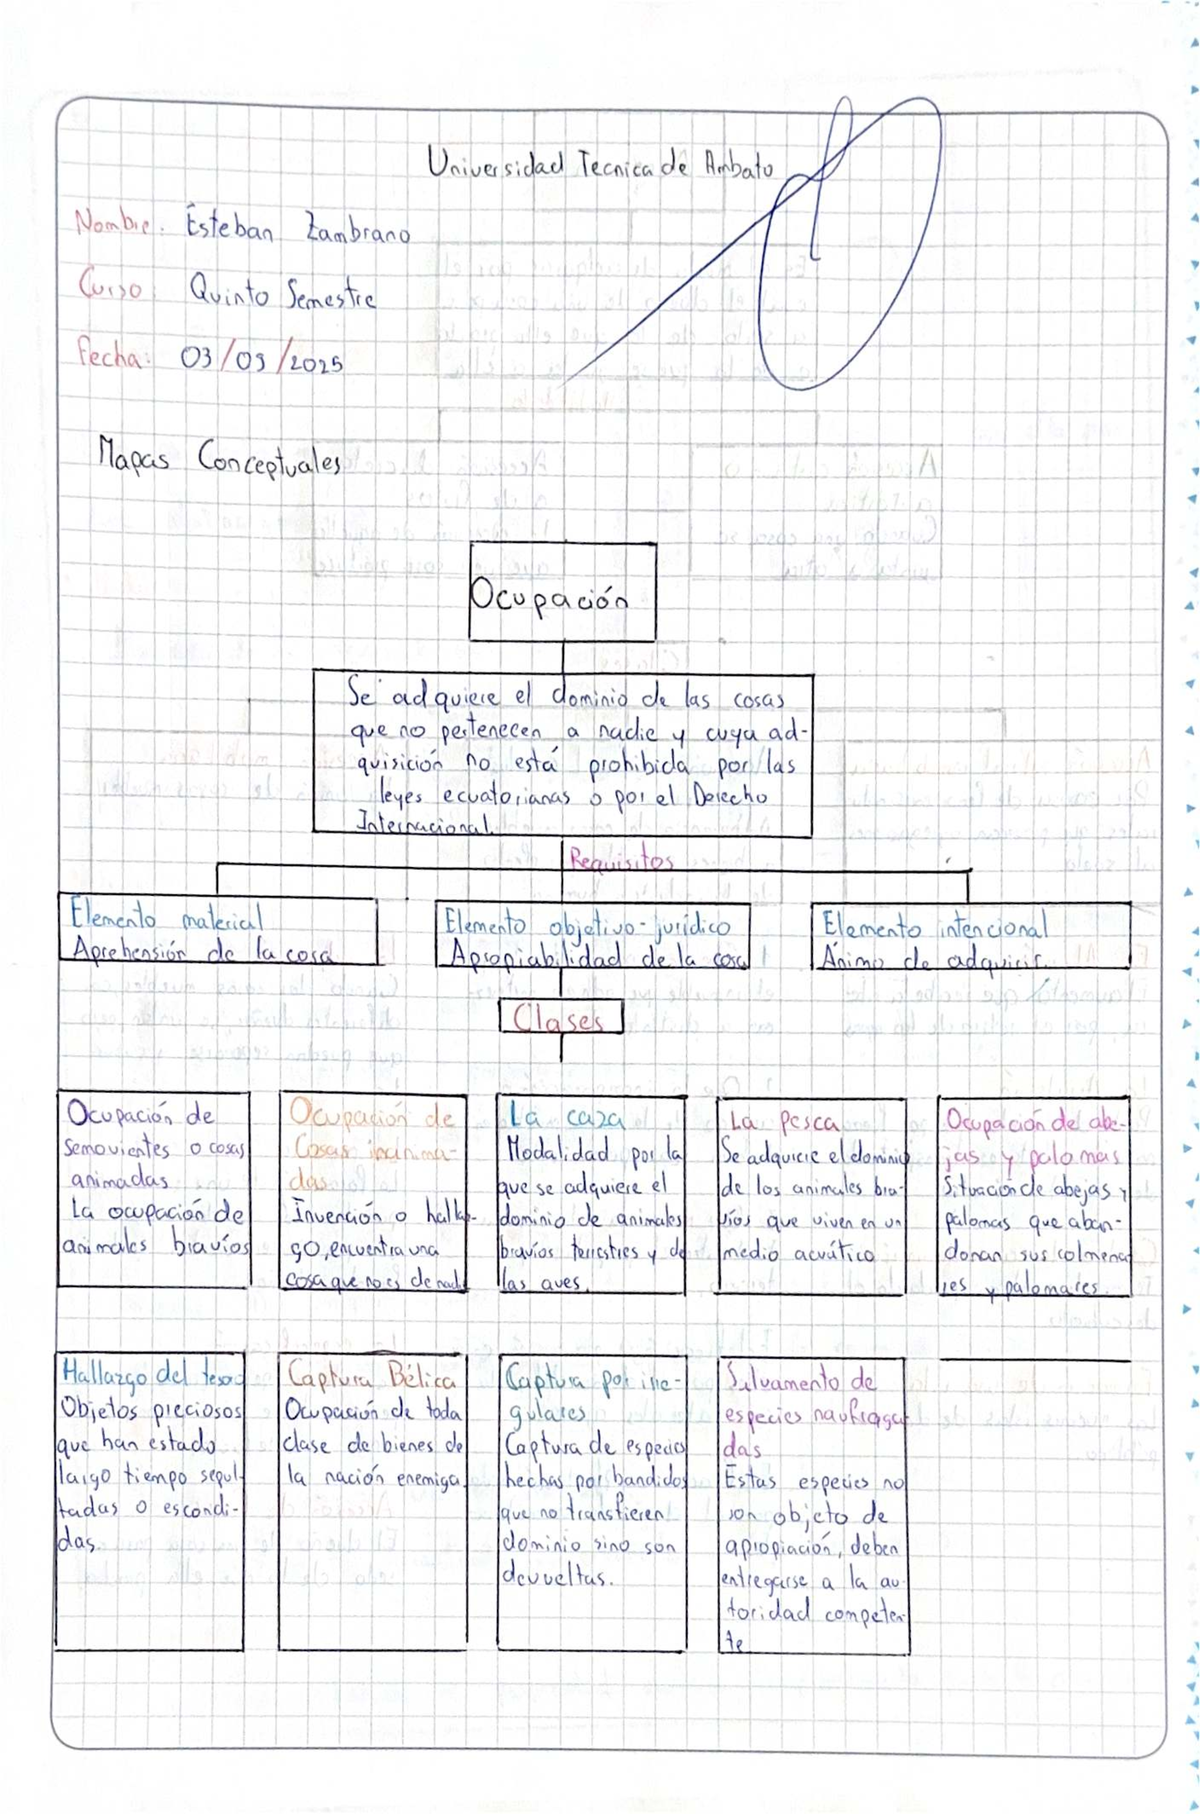 Universidad Tecnica de Ambato
Nombre: Esteban Zambrano
Curso: Quinto Semestre
Fecha: 03/09/2025
Mapas Conceptuales
Ocupación
Se adquiere el dominio de las cosas
que no pertenecen a nadie y cuya ad-
quisición no está prohibida por las
leyes ecuatorianas o por el Derecho
Internacional.
Requisitos
Elemento material
Aprehensión de la cosa
Elemento objetivo-jurídico
Apropiabilidad de la cosa
Elemento intencional
Ánimo de adquirir.
Clases
Ocupación de
semovientes o cosas
animadas
La ocupación de
animales bravíos
Ocupación de
Cosas inanima-
das
Invención o halla-
go, encuentra una
cosa que no es de nadie
La caza
Modalidad por la
que se adquiere el
dominio de animales
bravíos terrestres y de
las aves.
La pesca
Se adquiere el dominio
de los animales bra-
víos que viven en un
medio acuático
Ocupación de abe-
jas y palomas
Situación de abejas y
palomas que aban-
donan sus colmena
res y palomares.
Hallazgo del tesoro
Objetos preciosos
que han estado
largo tiempo sepul-
tadas o escondi-
das.
Captura Bélica
Ocupación de toda
clase de bienes de
la nación enemiga
Captura por irre-
gulares
Captura de especies
hechas por bandidos
que no transfieren
dominio sino son
devueltas.
Salvamento de
especies naufraga
das
Estas especies no
son objeto de
apropiación, deben
entregarse a la au
toridad competen-
te